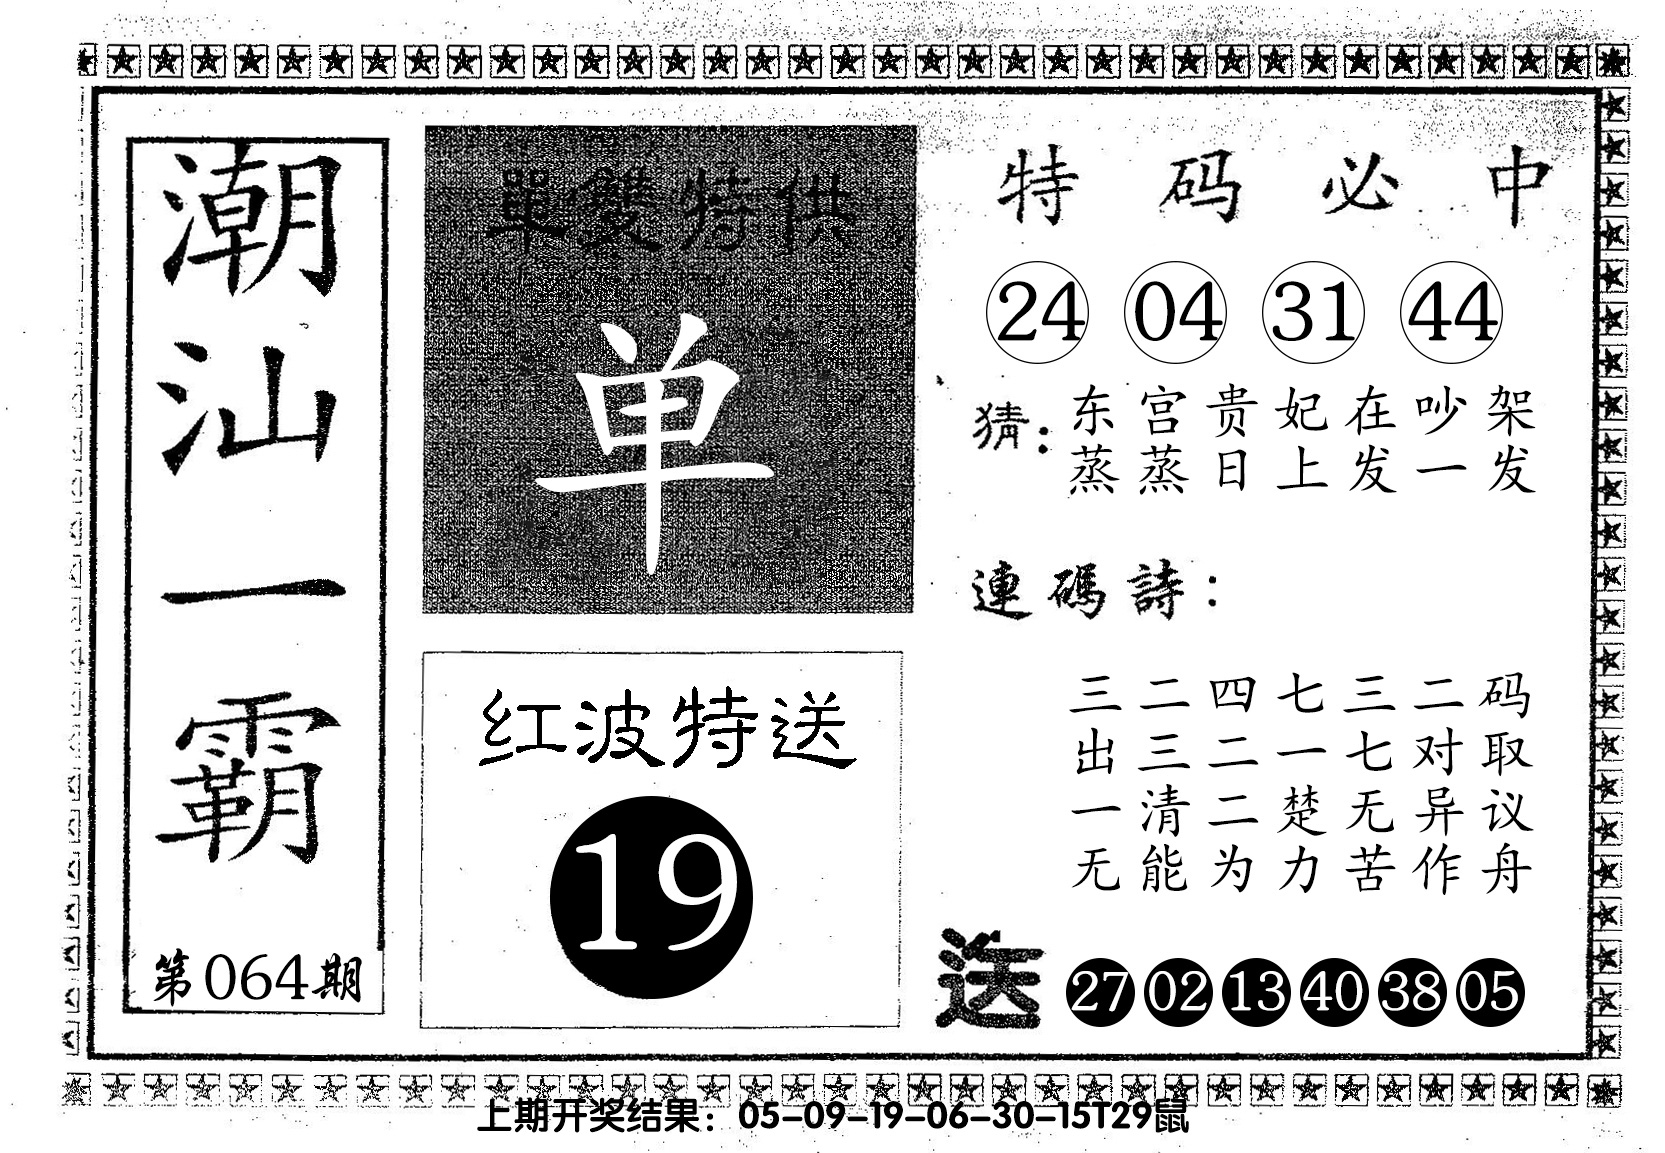 潮汕一霸
第064期
單雙特供
单
红波特送
19
特码必中
24 04 31 44
猜：东宫贵妃在吵架
蒸蒸日上发一发
連碼詩：
三二四七三二码
出三二一七对取
一清二楚无异议
无能为力苦作舟
送 27 02 13 40 38 05
上期开奖结果：05-09-19-06-30-15T29鼠